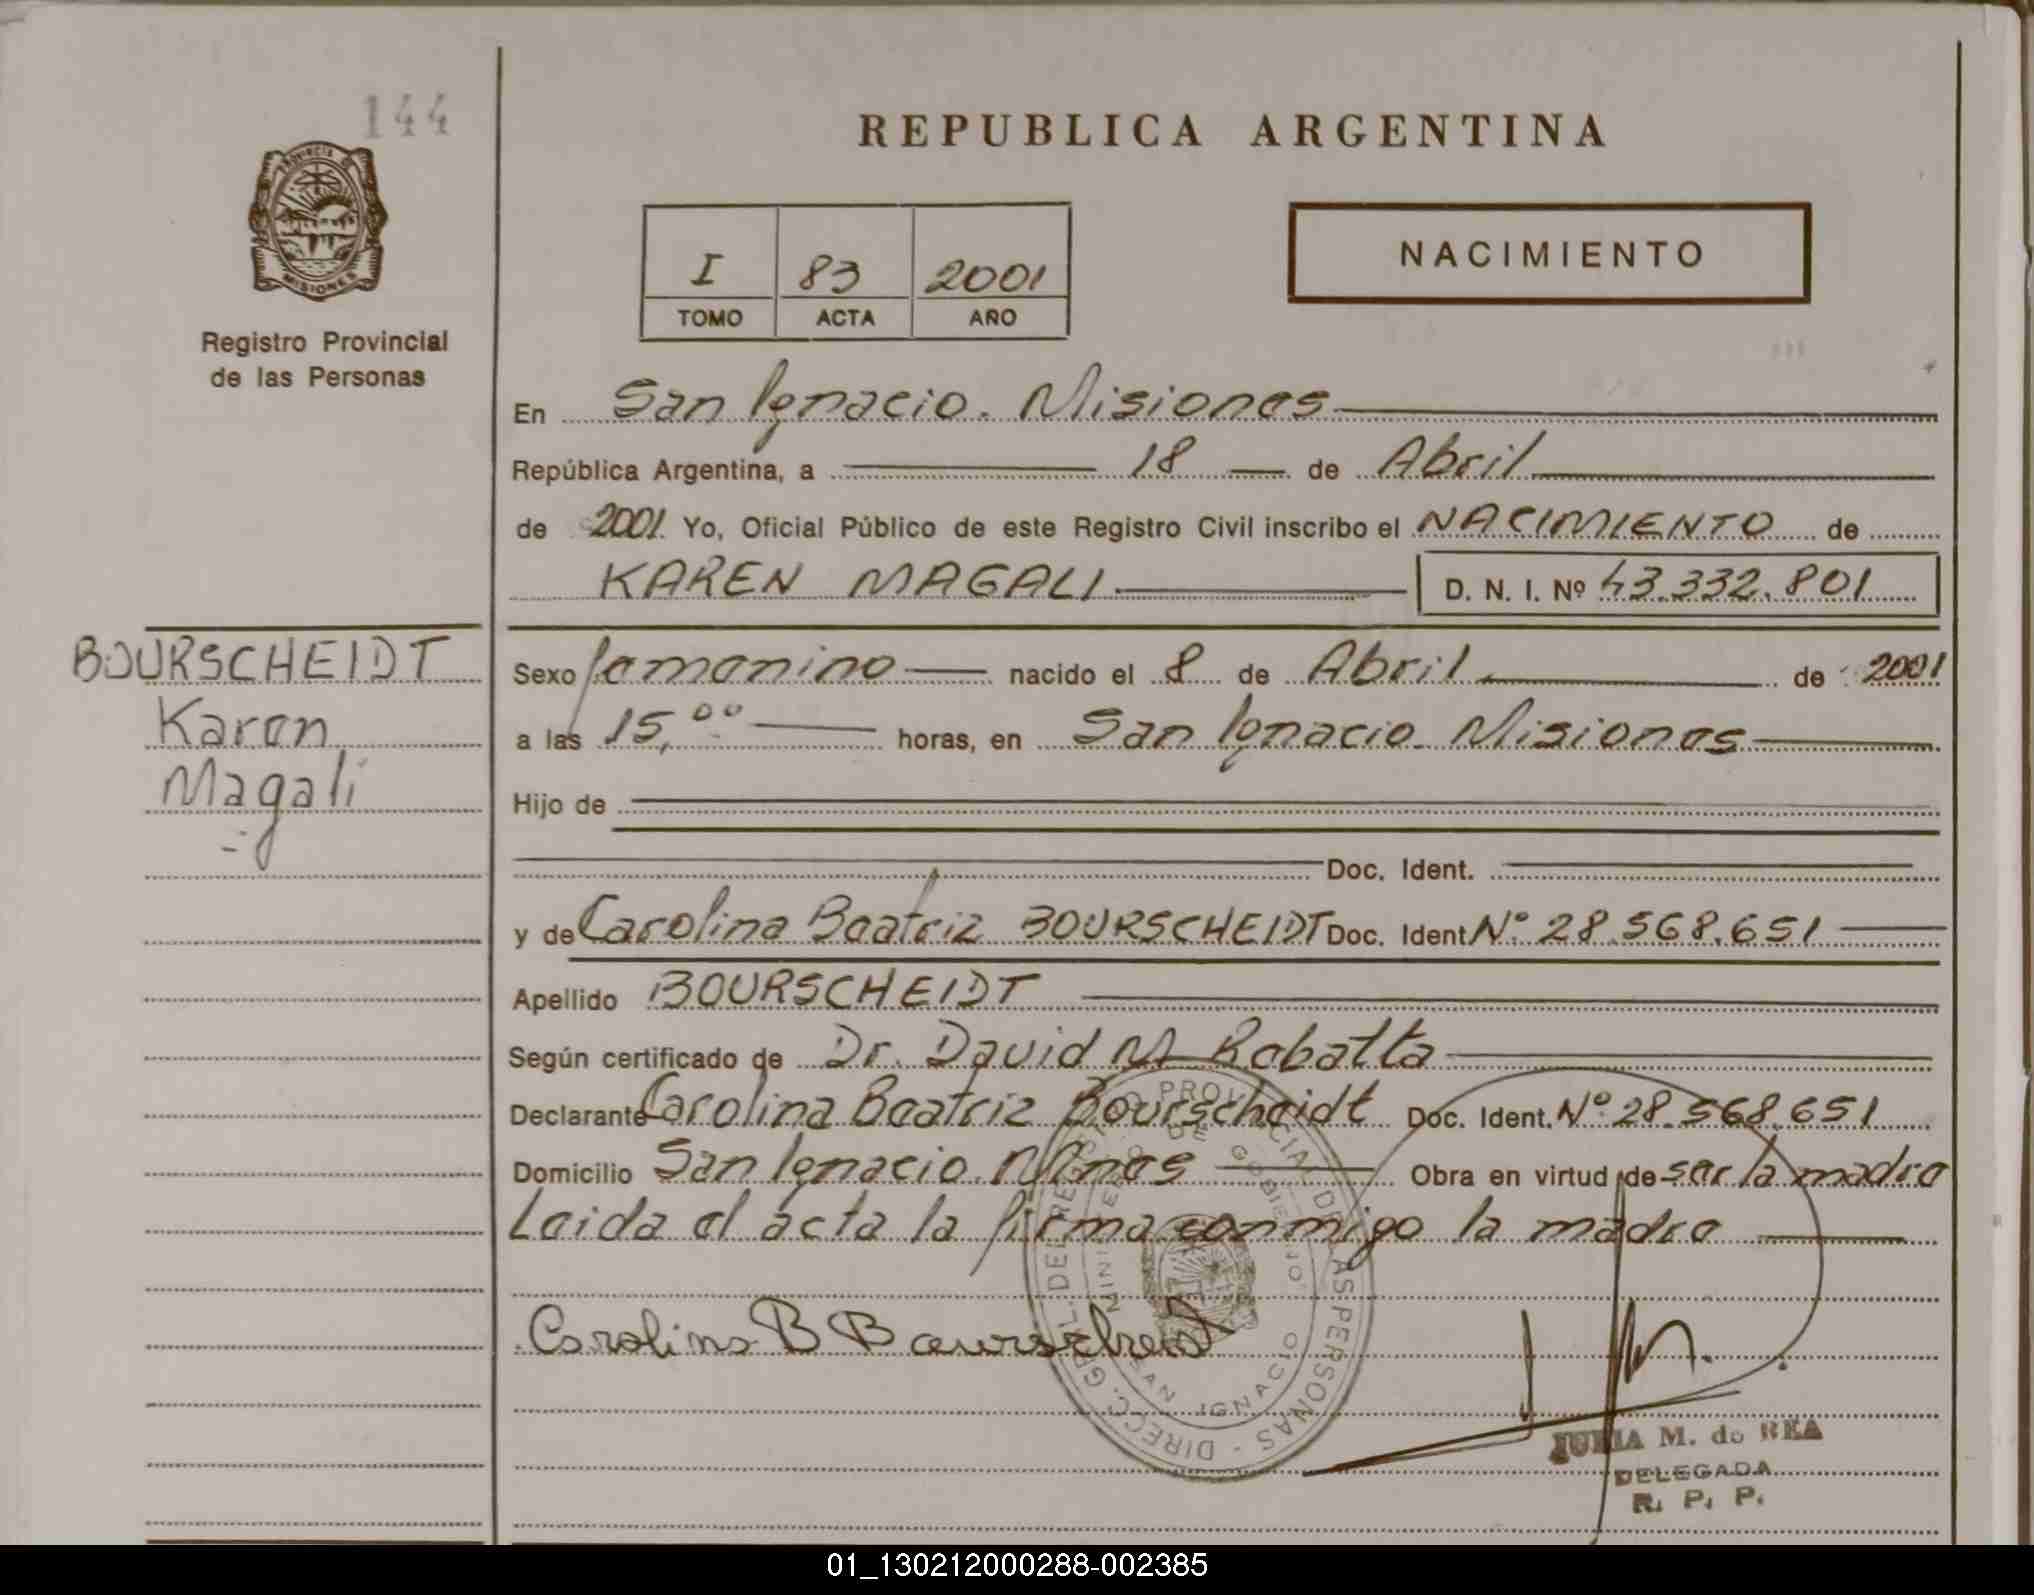 144
PROVINCIA DE
MISIONES
Registro Provincial
de las Personas
BOURSCHEIDT
Karen
Magali
REPUBLICA ARGENTINA
I 83 2001
TOMO ACTA AÑO
NACIMIENTO
En San Ignacio. Misiones
República Argentina, a 18 de Abril
de 2001. Yo, Oficial Público de este Registro Civil inscribo el NACIMIENTO de
KAREN MAGALI D. N. I. Nº 43.332.801
Sexo femenino nacido el 8 de Abril de 2001
a las 15,00 horas, en San Ignacio. Misiones
Hijo de
Doc. Ident.
y de Carolina Beatriz BOURSCHEIDT Doc. Ident. Nº 28.568.651
Apellido BOURSCHEIDT
Según certificado de Dr. David M Robatta
Declarante Carolina Beatriz Bourscheidt Doc. Ident. Nº 28.568.651
Domicilio San Ignacio. Mnes Obra en virtud de ser la madre
Leida el acta la firma conmigo la madre
Carolina B Bourscheidt
DIRECC. GRAL. DEL REGISTRO PROVINCIAL DE LAS PERSONAS
MINISTERIO DE GOBIERNO
SAN IGNACIO
JULIA M. de REA
DELEGADA
R. P. P.
01_130212000288-002385